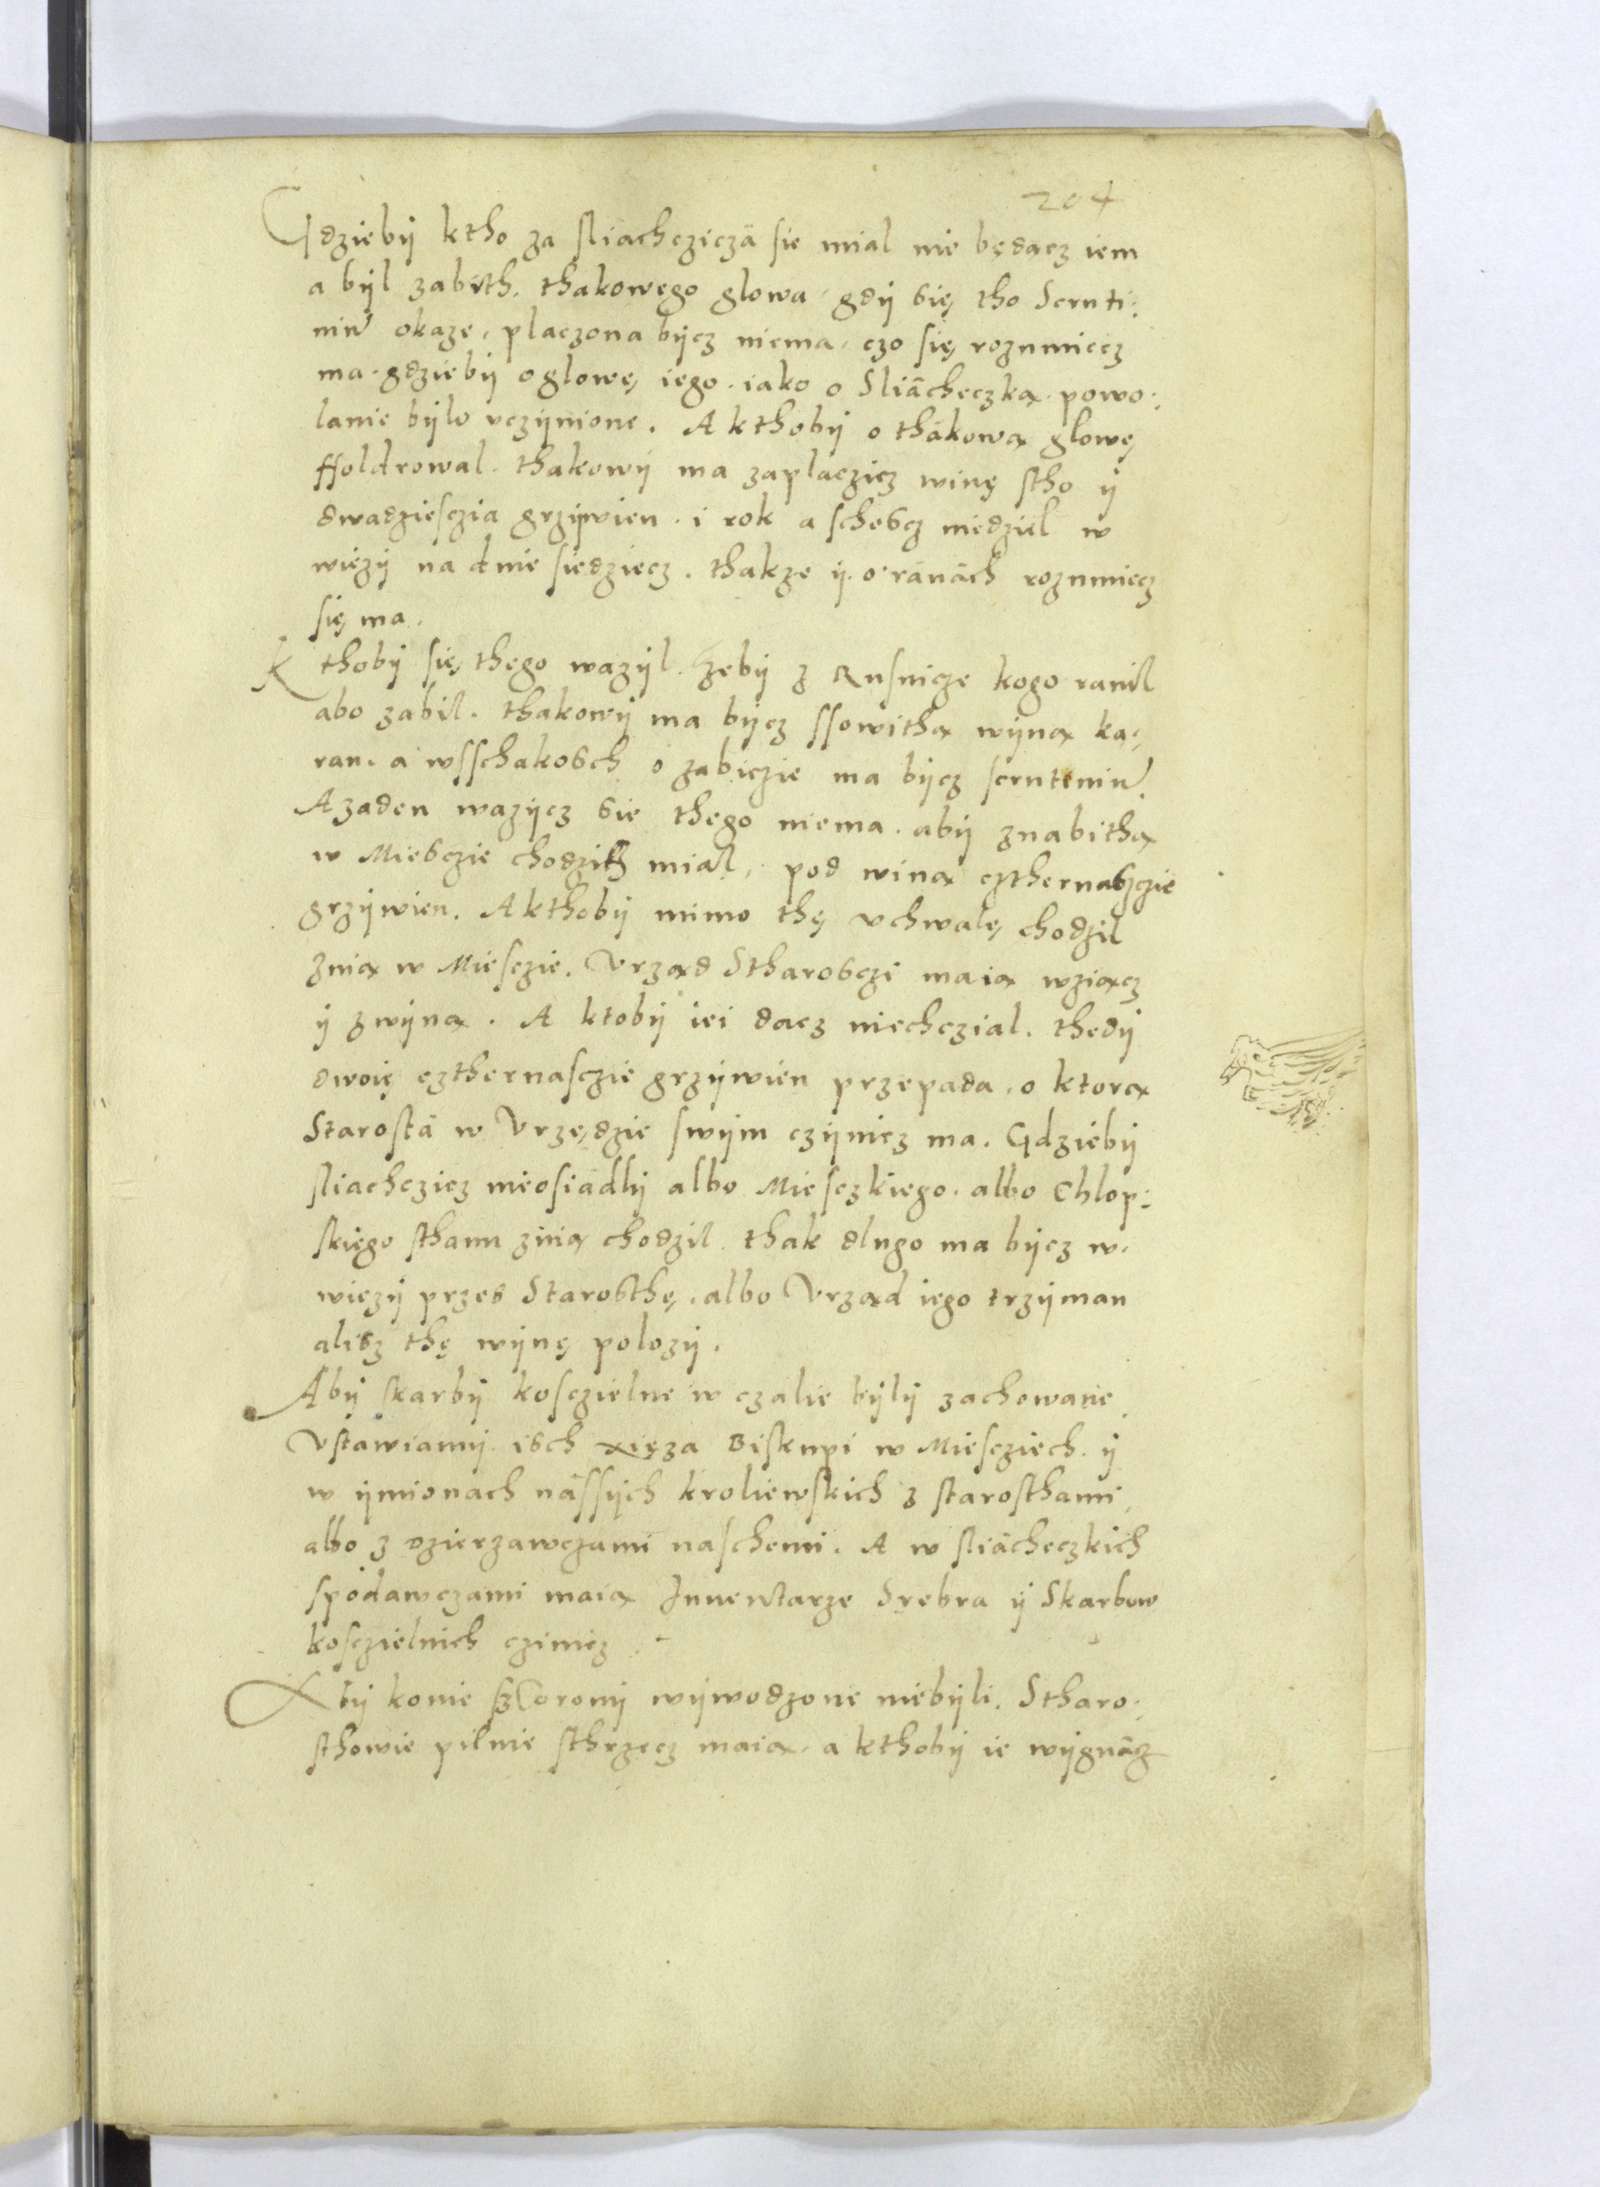 204
Gdzieby ktho za sliachcziczá sie mial nie będącz iem
a byl zabith. thakowego glowa gdy się tho Scruti:
niũ okaze, placzona bycz niema, czo się rozumiecz
ma. gdzieby o glowę iego. iako o Sliácheczka powo:
lanie bylo vczynione. A kthoby o thákową glowę
ffoldrowal. thakowy ma zaplaczicz winę stho y
dwadziesczia grzywien. i rok a schescz niedziel w
wiezy na dnie siedziecz. thakze y. o ránách rozumiecz
się ma.
Kthoby się thego wazyl. zeby z Rusnicze kogo ranil
abo zabil. thakowy ma bycz ssowithą wyną ka:
ran. a wsschakosch o zabiczie ma bycz scruteniũ.
A zaden wazycz sie thego niema. aby z nabithą
w Miesczie chodzicz mial, pod winą czthernasczie
grzywien. A kthoby mimo thę vchwalę chodzil
z nią w Miesczie. Vrząd Stharosczi maią wziącz
y z wyną. A ktoby iei dacz niechczial. thedy
dwoię czthernasczie grzywien przepada. o ktorą
Starostá w Vrzędzie swym czynicz ma. Gdzieby
sliachczicz nieosiádly albo Miesczkiego. albo Chlop:
skiego sthanu z nią chodzil. thak dlugo ma bycz w
wiezy przes Starosthę. albo Vrząd iego trzyman
alisz thę wynę polozy.
Aby skarby kosczielne w czalie byly zachowane
Vstawiamy. isch xięza Biskupi w Miesczięch. y
w ymionach nássych kroliewskich z starosthami
albo z dzierzawczami naschemi. A w sliácheczkich
spodawczami maią Inuentarze Srebra y Skarbow
kosczielnich czinicz.
Aby konie sz Corony wywodzone niebyli. Stharo:
sthowie pilnie sthrzecz maią. a kthoby ie wygnácz